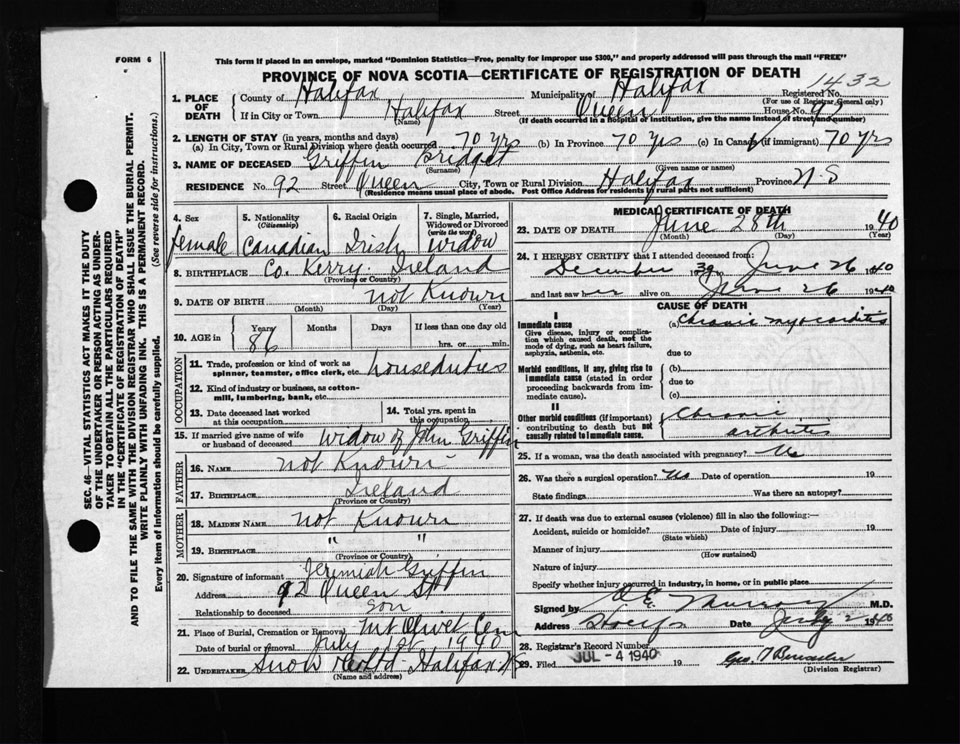 FORM 6
This form if placed in an envelope, marked "Dominion Statistics—Free, penalty for improper use $300," and properly addressed will pass through the mail "FREE"
PROVINCE OF NOVA SCOTIA—CERTIFICATE OF REGISTRATION OF DEATH
1432
SEC. 46—VITAL STATISTICS ACT MAKES IT THE DUTY
OF THE UNDERTAKER OR PERSON ACTING AS UNDER-
TAKER TO OBTAIN ALL THE PARTICULARS REQUIRED
IN THE "CERTIFICATE OF REGISTRATION OF DEATH"
AND TO FILE THE SAME WITH THE DIVISION REGISTRAR WHO SHALL ISSUE THE BURIAL PERMIT.
WRITE PLAINLY WITH UNFADING INK. THIS IS A PERMANENT RECORD.
Every item of Information should be carefully supplied. (See reverse side for instructions.)
1. PLACE OF DEATH County of Halifax Municipality of Halifax Registered No.
(For use of Registrar General only)
If in City or Town Halifax (Name) Street Queen House No. 92
(If death occurred in a hospital or institution, give the name instead of street and number)
2. LENGTH OF STAY (in years, months and days)
(a) In City, Town or Rural Division where death occurred 70 yrs (b) In Province 70 yrs (c) In Canada (if immigrant) 70 yrs
3. NAME OF DECEASED Griffin Bridget
(Surname) (Given name or names)
RESIDENCE No. 92 Street Queen City, Town or Rural Division Halifax Province N.S
(Residence means usual place of abode. Post Office Address for residents in rural parts not sufficient)
4. Sex female
5. Nationality (Citizenship) Canadian
6. Racial Origin Irish
7. Single, Married, Widowed or Divorced (write the word) widow
8. BIRTHPLACE Co. Kerry Ireland
(Province or Country)
9. DATE OF BIRTH not Known
(Month) (Day) (Year)
10. AGE in Years 86 Months Days If less than one day old hrs. or min.
OCCUPATION
11. Trade, profession or kind of work as spinner, teamster, office clerk, etc. houseduties
12. Kind of industry or business, as cotton-mill, lumbering, bank, etc.
13. Date deceased last worked at this occupation
14. Total yrs. spent in this occupation
15. If married give name of wife or husband of deceased widow of John Griffin
FATHER
16. NAME not Known
17. BIRTHPLACE Ireland
(Province or Country)
MOTHER
18. MAIDEN NAME not Known
19. BIRTHPLACE " "
(Province or Country)
20. Signature of informant Jeremiah Griffin
Address 92 Queen St
Relationship to deceased son
21. Place of Burial, Cremation or Removal Mt Olivet Cem
Date of burial or removal July 1940
22. UNDERTAKER Snow Halifax
(Name and address)
MEDICAL CERTIFICATE OF DEATH
23. DATE OF DEATH June 28th 1940
(Month) (Day) (Year)
24. I HEREBY CERTIFY that I attended deceased from:
December 39 to June 26 1940
and last saw her alive on June 26 1940
CAUSE OF DEATH
I
Immediate cause
Give disease, injury or complication which caused death, not the mode of dying, such as heart failure, asphyxia, asthenia, etc.
(a) Chronic myocarditis
due to
Morbid conditions, if any, giving rise to immediate cause (stated in order proceeding backwards from immediate cause).
(b)
due to
(c)
II
Other morbid conditions (if important) contributing to death but not causally related to immediate cause.
Chronic
arthritis
25. If a woman, was the death associated with pregnancy? No
26. Was there a surgical operation? No Date of operation 19
State findings Was there an autopsy?
27. If death was due to external causes (violence) fill in also the following:—
Accident, suicide or homicide? Date of injury 19
(State which)
Manner of injury
(How sustained)
Nature of injury
Specify whether injury occurred in industry, in home, or in public place
Signed by Murray M.D.
Address Date July 2 1940
28. Registrar's Record Number
29. Filed JUL - 4 1940 19 Geo.
(Division Registrar)